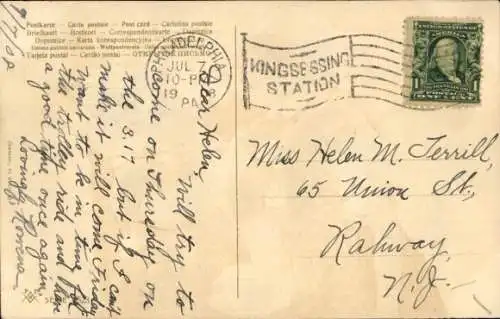 Postkarte — Carte postale — Post card — Cartolina postale
Briefkaart — Brefkort — Correspondenzkarte
Dopisnice — Karta korespondencyjna
Tarjeta postal
9/7/08
PHILADELPHIA
JUL 7
10-P
19 8
PA
KINGSESSING
STATION
1
Dear Helen
Will try to
come on Thursday on
the 3.17 but if I can't
make it will come Friday
want to be in time for
the trolley ride and have
a good time once again.
Lovingly
Miss Helen M. Terrill,
65 Union St.,
Rahway,
N.J.